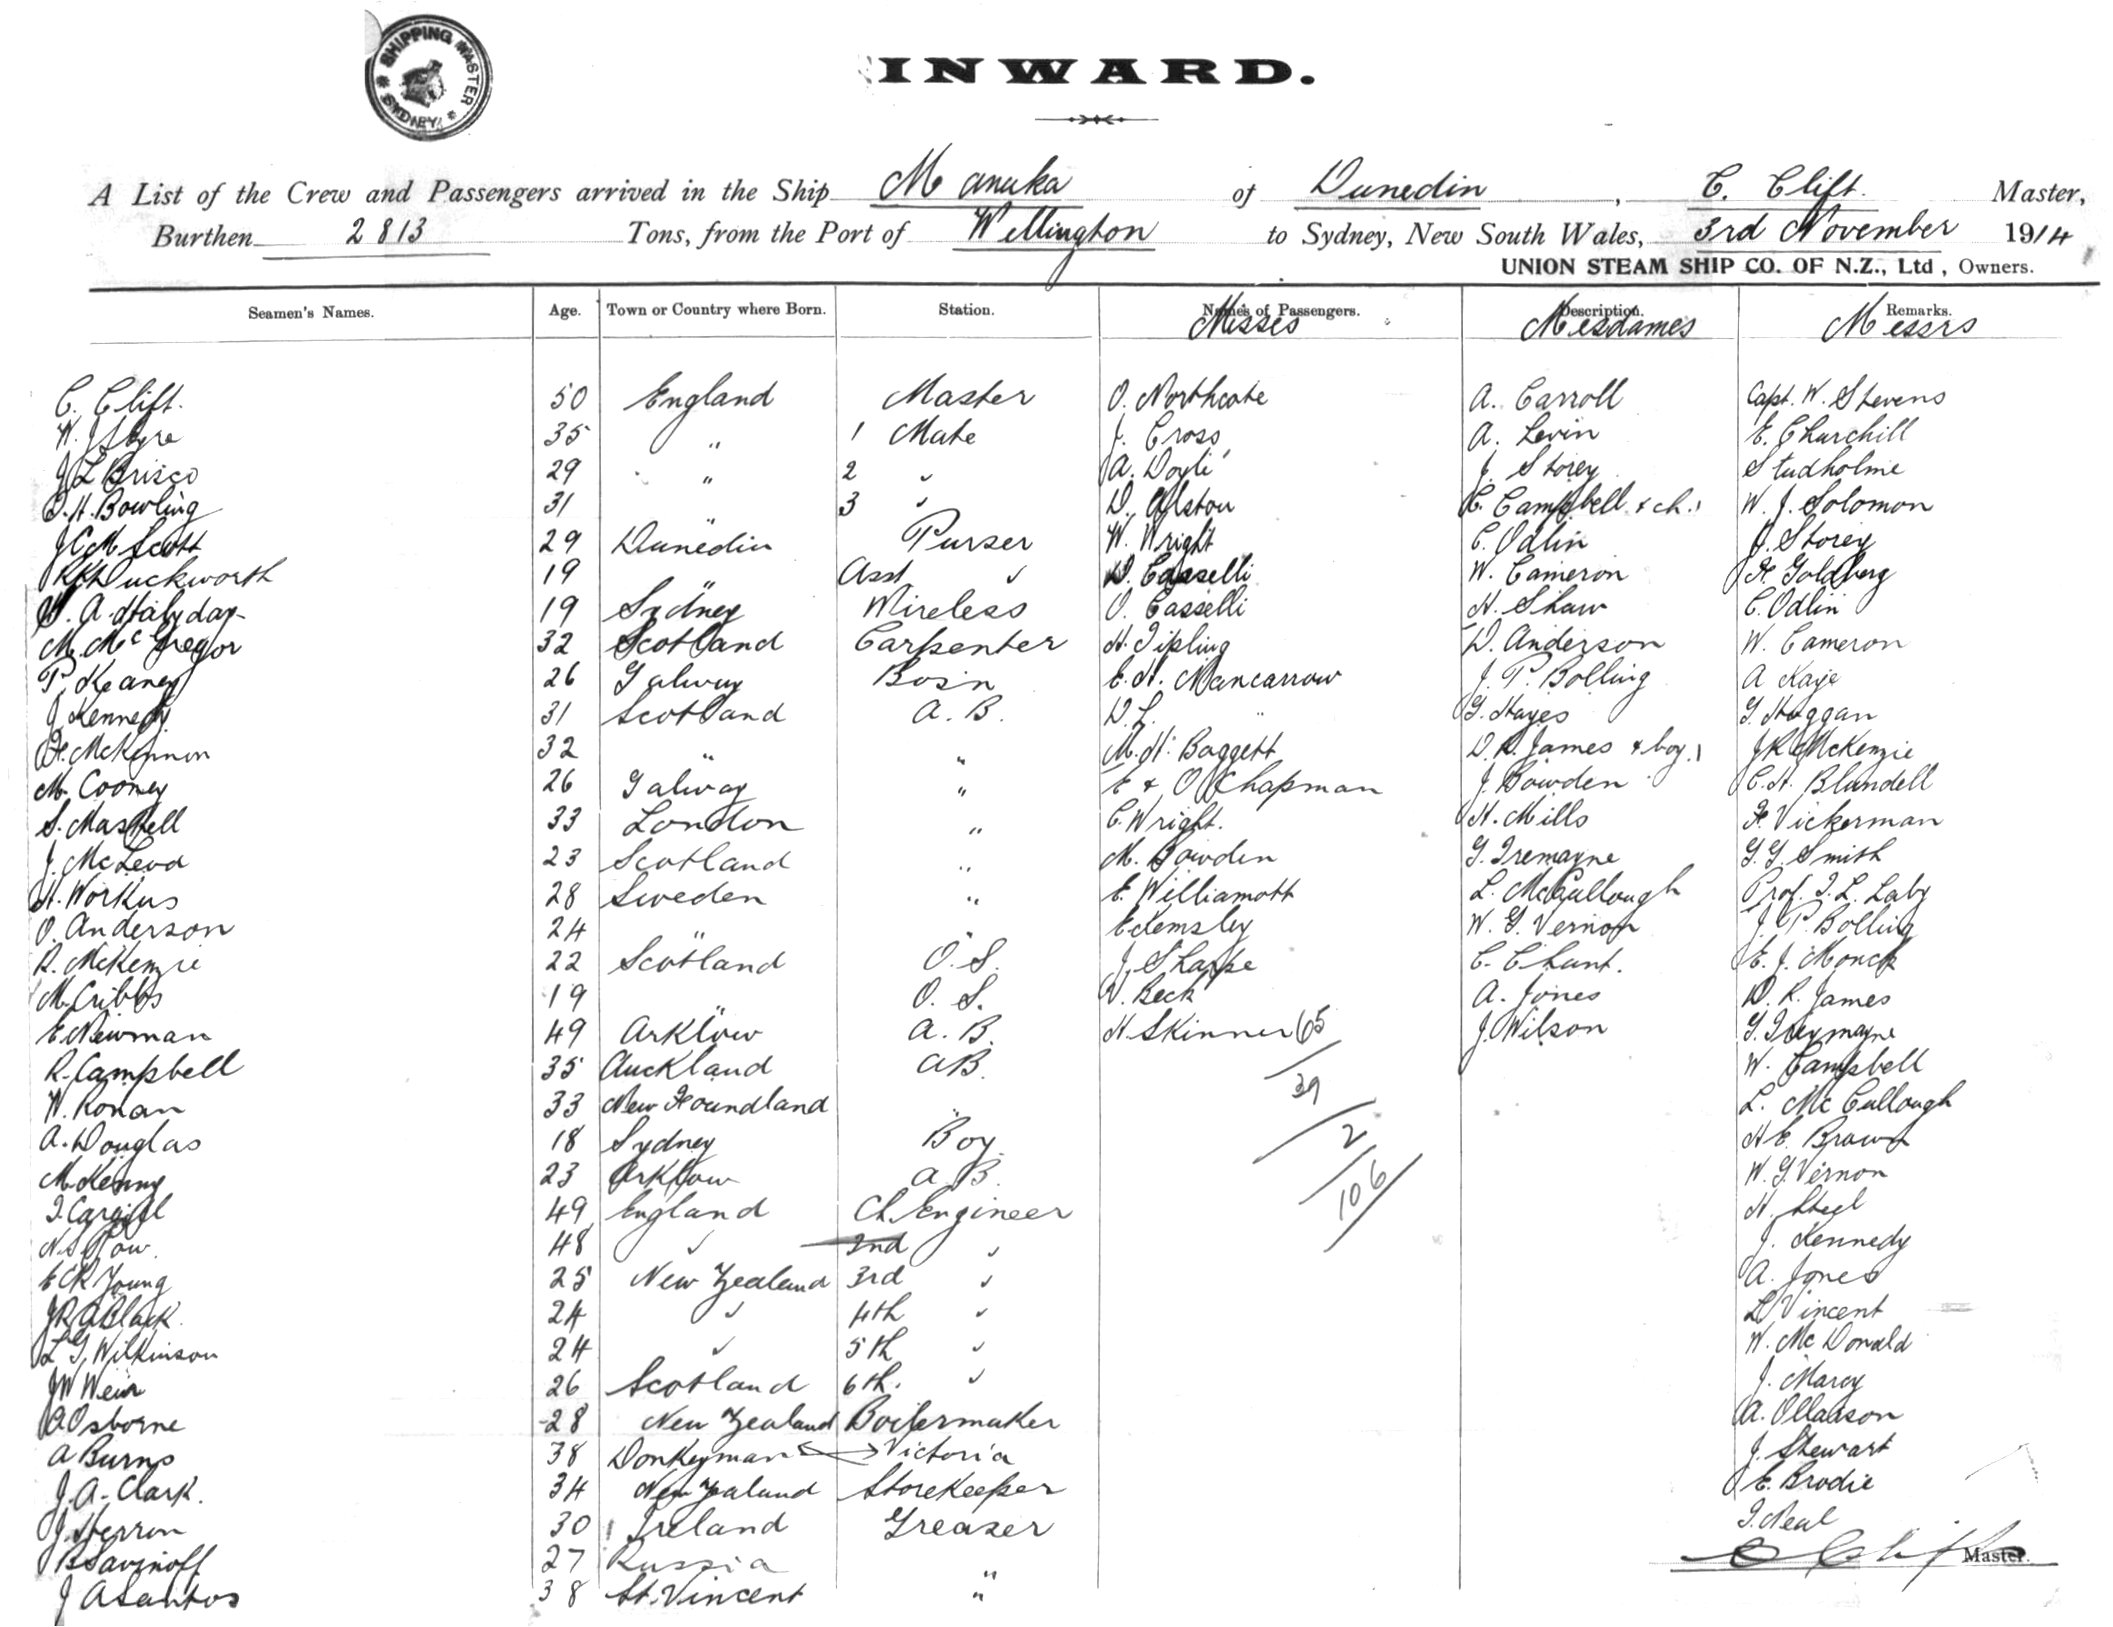 SHIPPING MASTER
* SYDNEY *
INWARD.
A List of the Crew and Passengers arrived in the Ship Manuka of Dunedin, C. Clift. Master,
Burthen 2813 Tons, from the Port of Wellington to Sydney, New South Wales, 3rd November 1914
UNION STEAM SHIP CO. OF N.Z., Ltd, Owners.
Seamen's Names. Age. Town or Country where Born. Station. Names of Passengers. Description. Remarks.
Misses Mesdames Messrs
C. Clift. 50 England Master O. Northcote A. Carroll Capt. W. Stevens
W. 35 " 1 Mate J. Cross A. Levin E. Churchill
J L Brisco 29 " 2 " A. Doyli J. Storey Studholme
D. H. Bowling 31 " 3 " D. Alston C. Campbell & ch. W. J. Solomon
J C M Scott 29 Dunedin Purser W. Wright C. Odlin J. Storey
Duckworth 19 " Asst " D. Casselli W. Cameron H. Goldberg
A. Halyday 19 Sydney Wireless O. Casselli H. Shaw C. Odlin
M. McGregor 32 Scotland Carpenter H. Tipling D. Anderson W. Cameron
P. Keaney 26 Galway Bos'n E. H. Nancarrow J. P. Bolling A Kaye
J Kennedy 31 Scotland A. B. D L. " G. Hayes G. Hoggan
H. McKinnon 32 " " M. H. Baggett D. R. James & boy J K McKenzie
M. Cooney 26 Galway " E & O Chapman J. Bowden C. H. Blundell
S. Maskell 33 London " C. Wright. H. Mills H. Vickerman
J. McLeod 23 Scotland " M. Bowden G. Tremayne G. G. Smith
H. Workus 28 Sweden " E. Williamott L. McCullough Prof. T. L. Laby
O. Anderson 24 " " E Kemsley W. G. Vernon J. P. Bolling
R. McKenzie 22 Scotland O. S. J. Sharpe C. Chant. E. J. Monck
M. Cribbs 19 " O. S. V. Beck A. Jones D. R. James
E Newman 49 Arklow A. B. H. Skinner 65 J. Wilson G. Treymayne
R. Campbell 35 Auckland AB. W. Campbell
W. Ronan 33 New Foundland " 39 L. McCullough
A. Douglas 18 Sydney Boy 2 H E. Brown
M Kenny 23 Arklow A B. 106 W. G. Vernon
T. Cargill 49 England Ch. Engineer H. Steel
N. S. Row. 48 " 2nd " J. Kennedy
E C R Young 25 New Zealand 3rd " A. Jones
J R A Black. 24 " 4th " L. Vincent
L G Wilkinson 24 " 5th " W. McDonald
J W Weir 26 Scotland 6th. " J. Marcy
A Osborne 28 New Zealand Boilermaker A. Ollasson
A Burns 38 Donkeyman Victoria J. Stewart
J. A. Clark. 34 New Zealand Storekeeper E. Brodie
J. Herron 30 Ireland Greaser T. Neal
B Savinoff 27 Russia " C Clift Master.
J A Santos 38 St. Vincent "